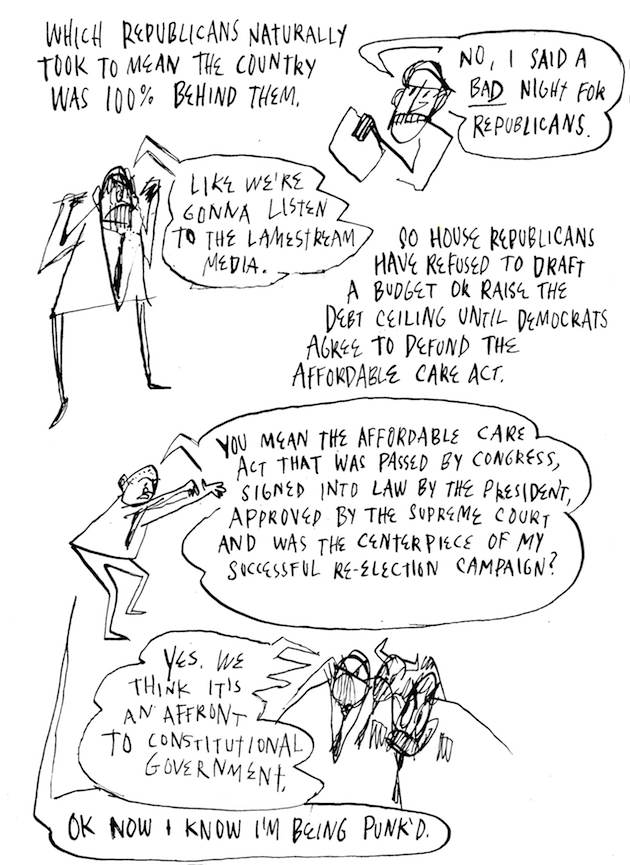 WHICH REPUBLICANS NATURALLY
TOOK TO MEAN THE COUNTRY
WAS 100% BEHIND THEM.
NO, I SAID A
BAD NIGHT FOR
REPUBLICANS.
LIKE WE'RE
GONNA LISTEN
TO THE LAMESTREAM
MEDIA.
SO HOUSE REPUBLICANS
HAVE REFUSED TO DRAFT
A BUDGET OR RAISE THE
DEBT CEILING UNTIL DEMOCRATS
AGREE TO DEFUND THE
AFFORDABLE CARE ACT.
YOU MEAN THE AFFORDABLE CARE
ACT THAT WAS PASSED BY CONGRESS,
SIGNED INTO LAW BY THE PRESIDENT,
APPROVED BY THE SUPREME COURT
AND WAS THE CENTERPIECE OF MY
SUCCESSFUL RE-ELECTION CAMPAIGN?
YES. WE
THINK IT IS
AN AFFRONT
TO CONSTITUTIONAL
GOVERNMENT.
OK NOW I KNOW I'M BEING PUNK'D.